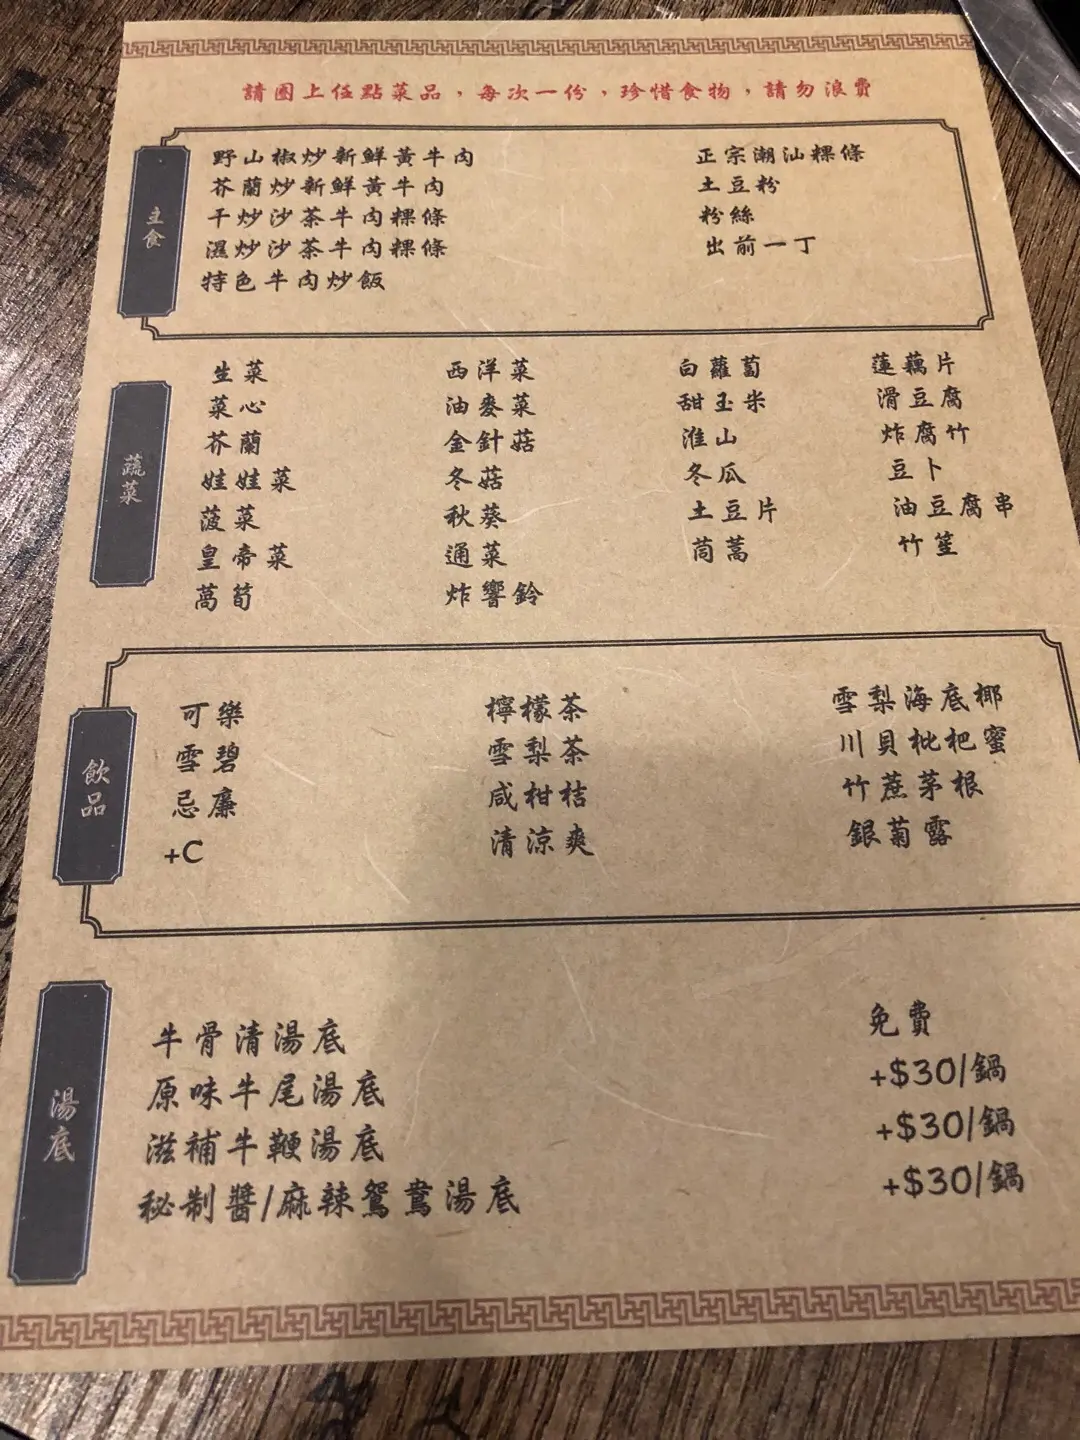 請圈上任點菜品，每次一份，珍惜食物，請勿浪費
主食
野山椒炒新鮮黃牛肉
芥蘭炒新鮮黃牛肉
干炒沙茶牛肉粿條
濕炒沙茶牛肉粿條
特色牛肉炒飯
正宗潮汕粿條
土豆粉
粉絲
出前一丁
蔬菜
生菜
菜心
芥蘭
娃娃菜
菠菜
皇帝菜
萵筍
西洋菜
油麥菜
金針菇
冬菇
秋葵
通菜
炸響鈴
白蘿蔔
甜玉米
淮山
冬瓜
土豆片
茼蒿
蓮藕片
滑豆腐
炸腐竹
豆卜
油豆腐串
竹笙
飲品
可樂
雪碧
忌廉
+C
檸檬茶
雪梨茶
咸柑桔
清涼爽
雪梨海底椰
川貝枇杷蜜
竹蔗茅根
銀菊露
湯底
牛骨清湯底 免費
原味牛尾湯底 +$30/鍋
滋補牛鞭湯底 +$30/鍋
秘制醬/麻辣鴛鴦湯底 +$30/鍋